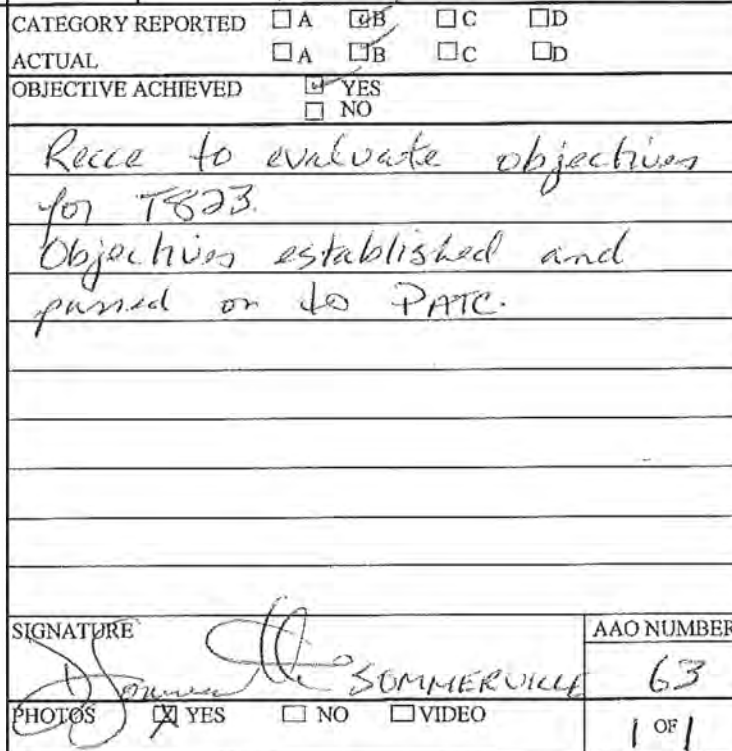 CATEGORY REPORTED ☐ A ☑ B ☐ C ☐ D
ACTUAL ☐ A ☑ B ☐ C ☐ D
OBJECTIVE ACHIEVED ☑ YES
☐ NO
Recce to evaluate objectives
for T823.
Objectives established and
passed on to PATC.
SIGNATURE AAO NUMBER
SOMMERVILLE 63
PHOTOS ☒ YES ☐ NO ☐ VIDEO 1 OF 1